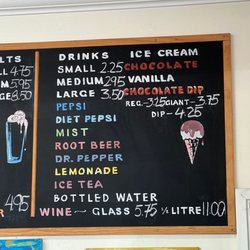 LTS
ALL 4.75
UM 5.95
GE 8.50
495
R
DRINKS
SMALL 2.25
MEDIUM 2.95
LARGE 3.50
PEPSI
DIET PEPSI
MIST
ROOT BEER
DR. PEPPER
LEMONADE
ICE TEA
BOTTLED WATER
WINE ~ GLASS 5.75 ½ LITRE 11.00
ICE CREAM
CHOCOLATE
VANILLA
CHOCOLATE DIP
REG.-3.25 GIANT-3.75
DIP-4.25